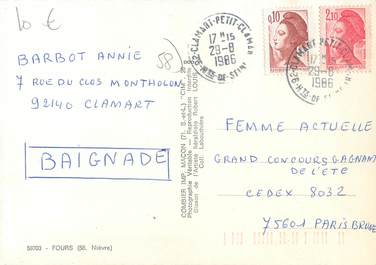 10 €
58
BARBOT ANNIE
7 RUE DU CLOS MONTHOLON
92140 CLAMART
BAIGNADE
0,10
2,10
92-CLAMART-PETIT-CLAMART
17 H 15
29-8
1986
HTS-DE-SEINE
92-CLAMART-PETIT-CLAMART
17 H 15
29-8
1986
COMBIER IMP. MACON (71. S.-et-L.) "CIM"
Photographie Véritable - Reproduction Interdite
FEMME ACTUELLE
GRAND CONCOURS GAGNANT
DE L'ETE
CEDEX 8032
75601 PARIS BRUNE
50703 - FOURS (58, Nièvre)